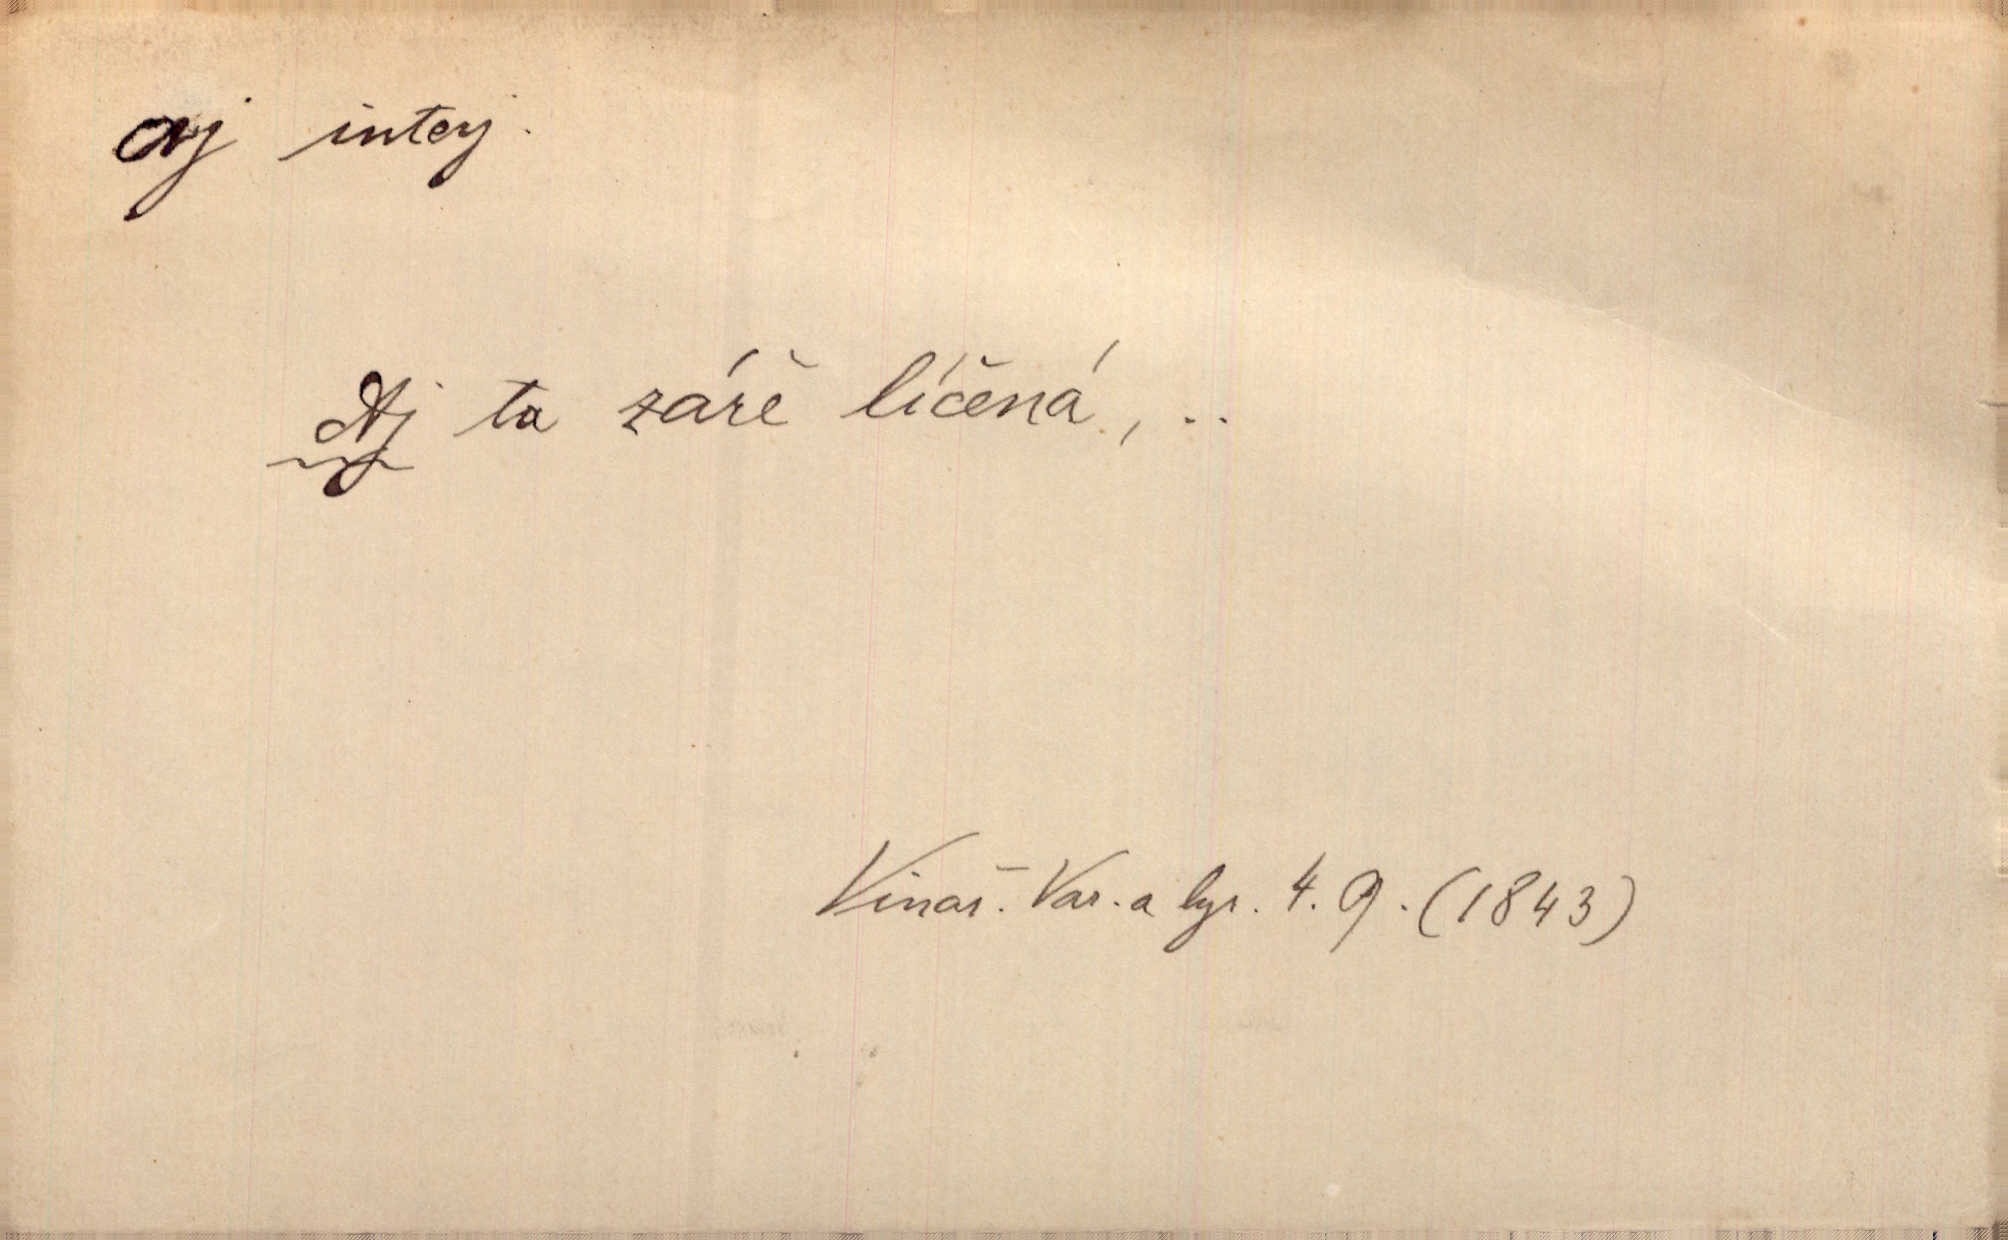 aj interj.
Aj ta zářě líčená, ..
Vinař. Var. a lyr. 4. 9. (1843)